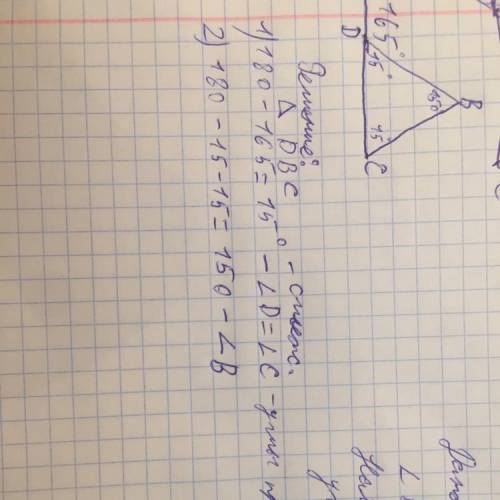 165°
D
15°
150
B
15
C
Решение:
Δ DBC
1) 180 - 165 = 15° - смежн.
∠D = ∠C - углы пр
2) 180 - 15 - 15 = 150 - ∠B